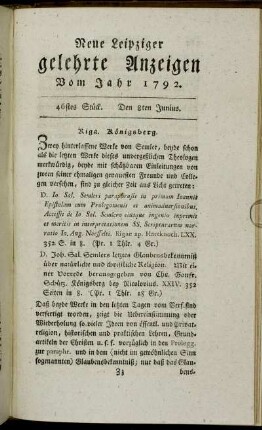 Neue Leipziger
gelehrte Anzeigen
Vom Jahr 1792.
46stes Stück. Den 8ten Junius.
Riga. Königsberg.
Zwey hinterlassene Werke von Semler, beyde schon
als die letzten Werke dieses unvergeßlichen Theologen
merkwürdig, beyde mit schätzbaren Einleitungen von
zween seiner ehmaligen getreuesten Freunde und Col-
legen versehen, sind zu gleicher Zeit ans Licht getreten:
D. Io. Sal. Semleri paraphrasis in primam Ioannis
Epistolam cum Prolegomenis et animadversionibus,
Accessit de Io. Sal. Semlero eiusque ingenio imprimis
et meritis in interpretationem SS. Scripturarum nar-
ratio Io. Aug. Noesselti. Rigae ap. Hartknoch. LXX.
352 S. in 8. (Pr. 1 Thlr. 4 Gr.)
D. Joh. Sal. Semlers letztes Glaubensbekenntniß
über natürliche und christliche Religion. Mit ei-
ner Vorrede herausgegeben von Chr. Gottfr.
Schütz. Königsberg bey Nicolovius. XXIV. 352
Seiten in 8. (Pr. 1 Thlr. 18 Gr.)
Daß beyde Werke in den letzten Tagen vom Verf. sind
verfertigt worden, zeigt die Uebereinstimmung oder
Wiederholung so vieler Ideen von öffentl. und Privat-
religion, historischen und praktischen Lehren, Grund-
artikeln der Christen u. s. f. vorzüglich in den Prolegg.
zur paraphr. und in dem (nicht im gewöhnlichen Sinn
sogenannten) Glaubensbekenntniß; nur daß das Glau-
Zz bens-